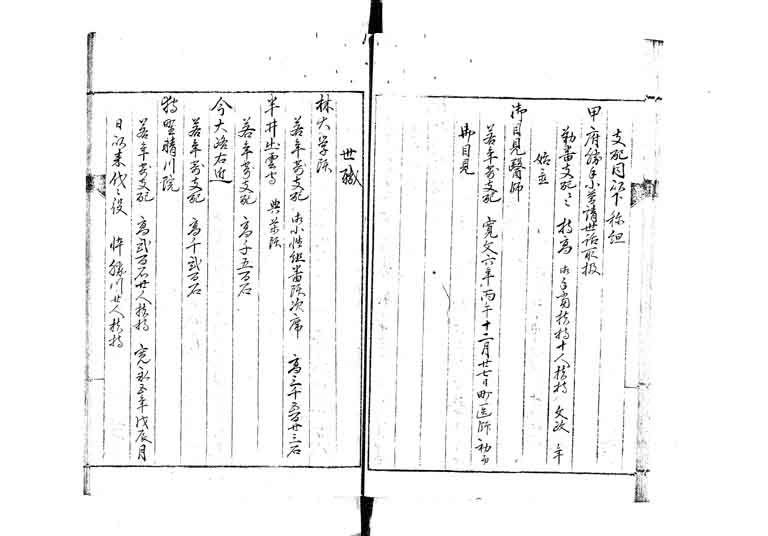 支配同以下称組
甲府勝手小普請世話取扱
勤番支配之 持高 御手当扶持十人扶持 文政 年
始立
御目見醫師
若年寄支配 寛文六年丙午十二月廿七日町医師初而
御目見
世職
林大学頭
若年寄支配 御小性組番頭次席 高三千五百廿三石
半井出雲守 典薬頭
若年寄支配 高千五百石
今大路右近
若年寄支配 高千弐百石
狩野晴川院
若年寄支配 高弐百石廿人扶持 寛永五年戊辰月
日以来代々役 忰勝川廿人扶持